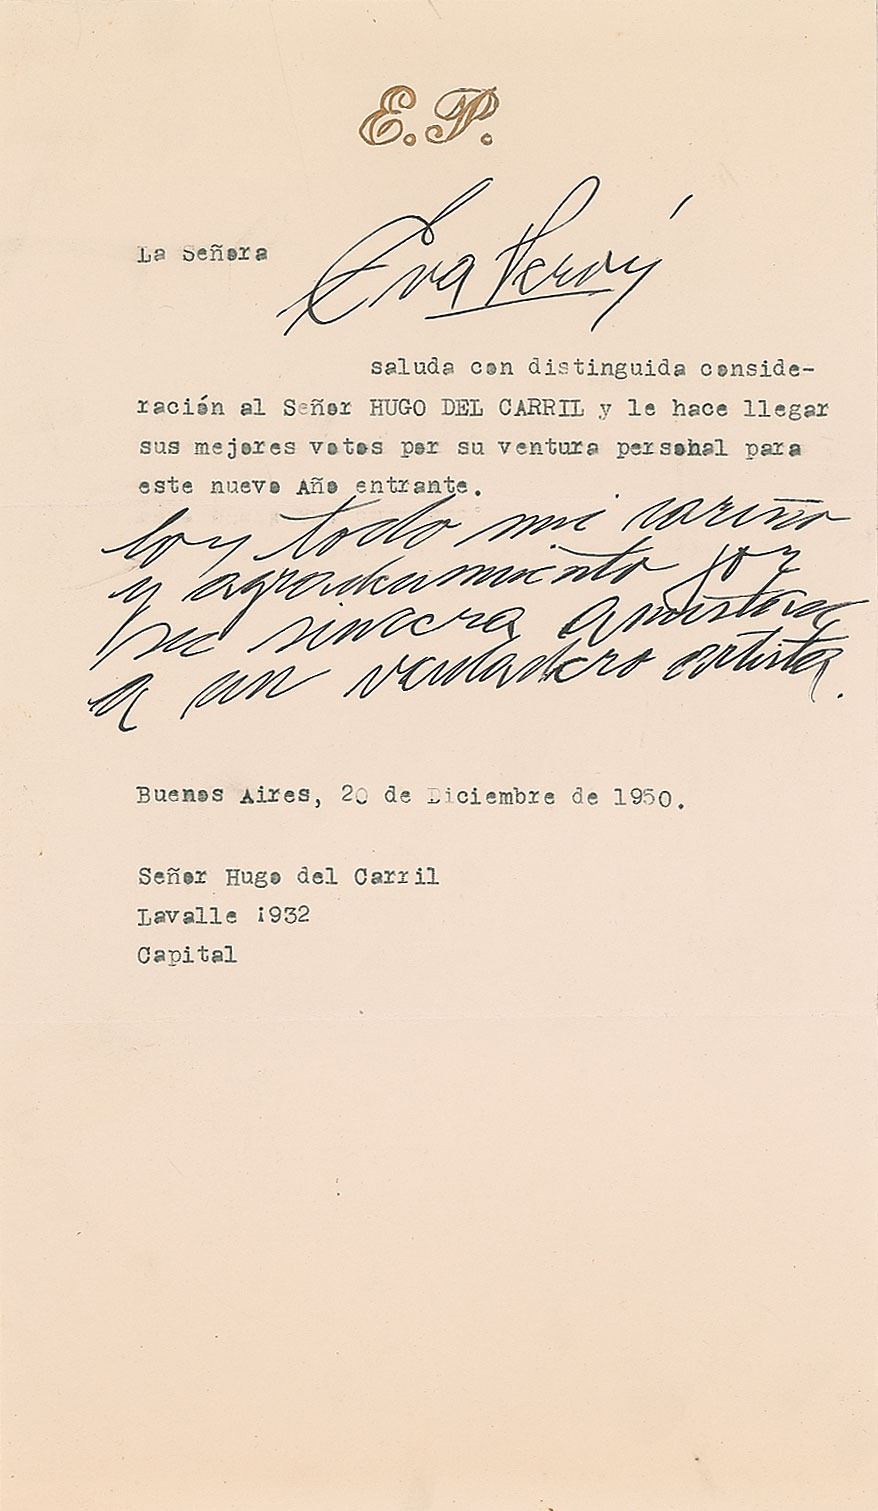 E. P.
La Señora Eva Perón
saluda con distinguida conside-
ración al Señor HUGO DEL CARRIL y le hace llegar
sus mejores votos por su ventura personal para
este nuevo Año entrante.
Con todo mi cariño
y agradecimiento por
su sincera amistad
a un verdadero artista.
Buenos Aires, 20 de Diciembre de 1950.
Señor Hugo del Carril
Lavalle 1932
Capital